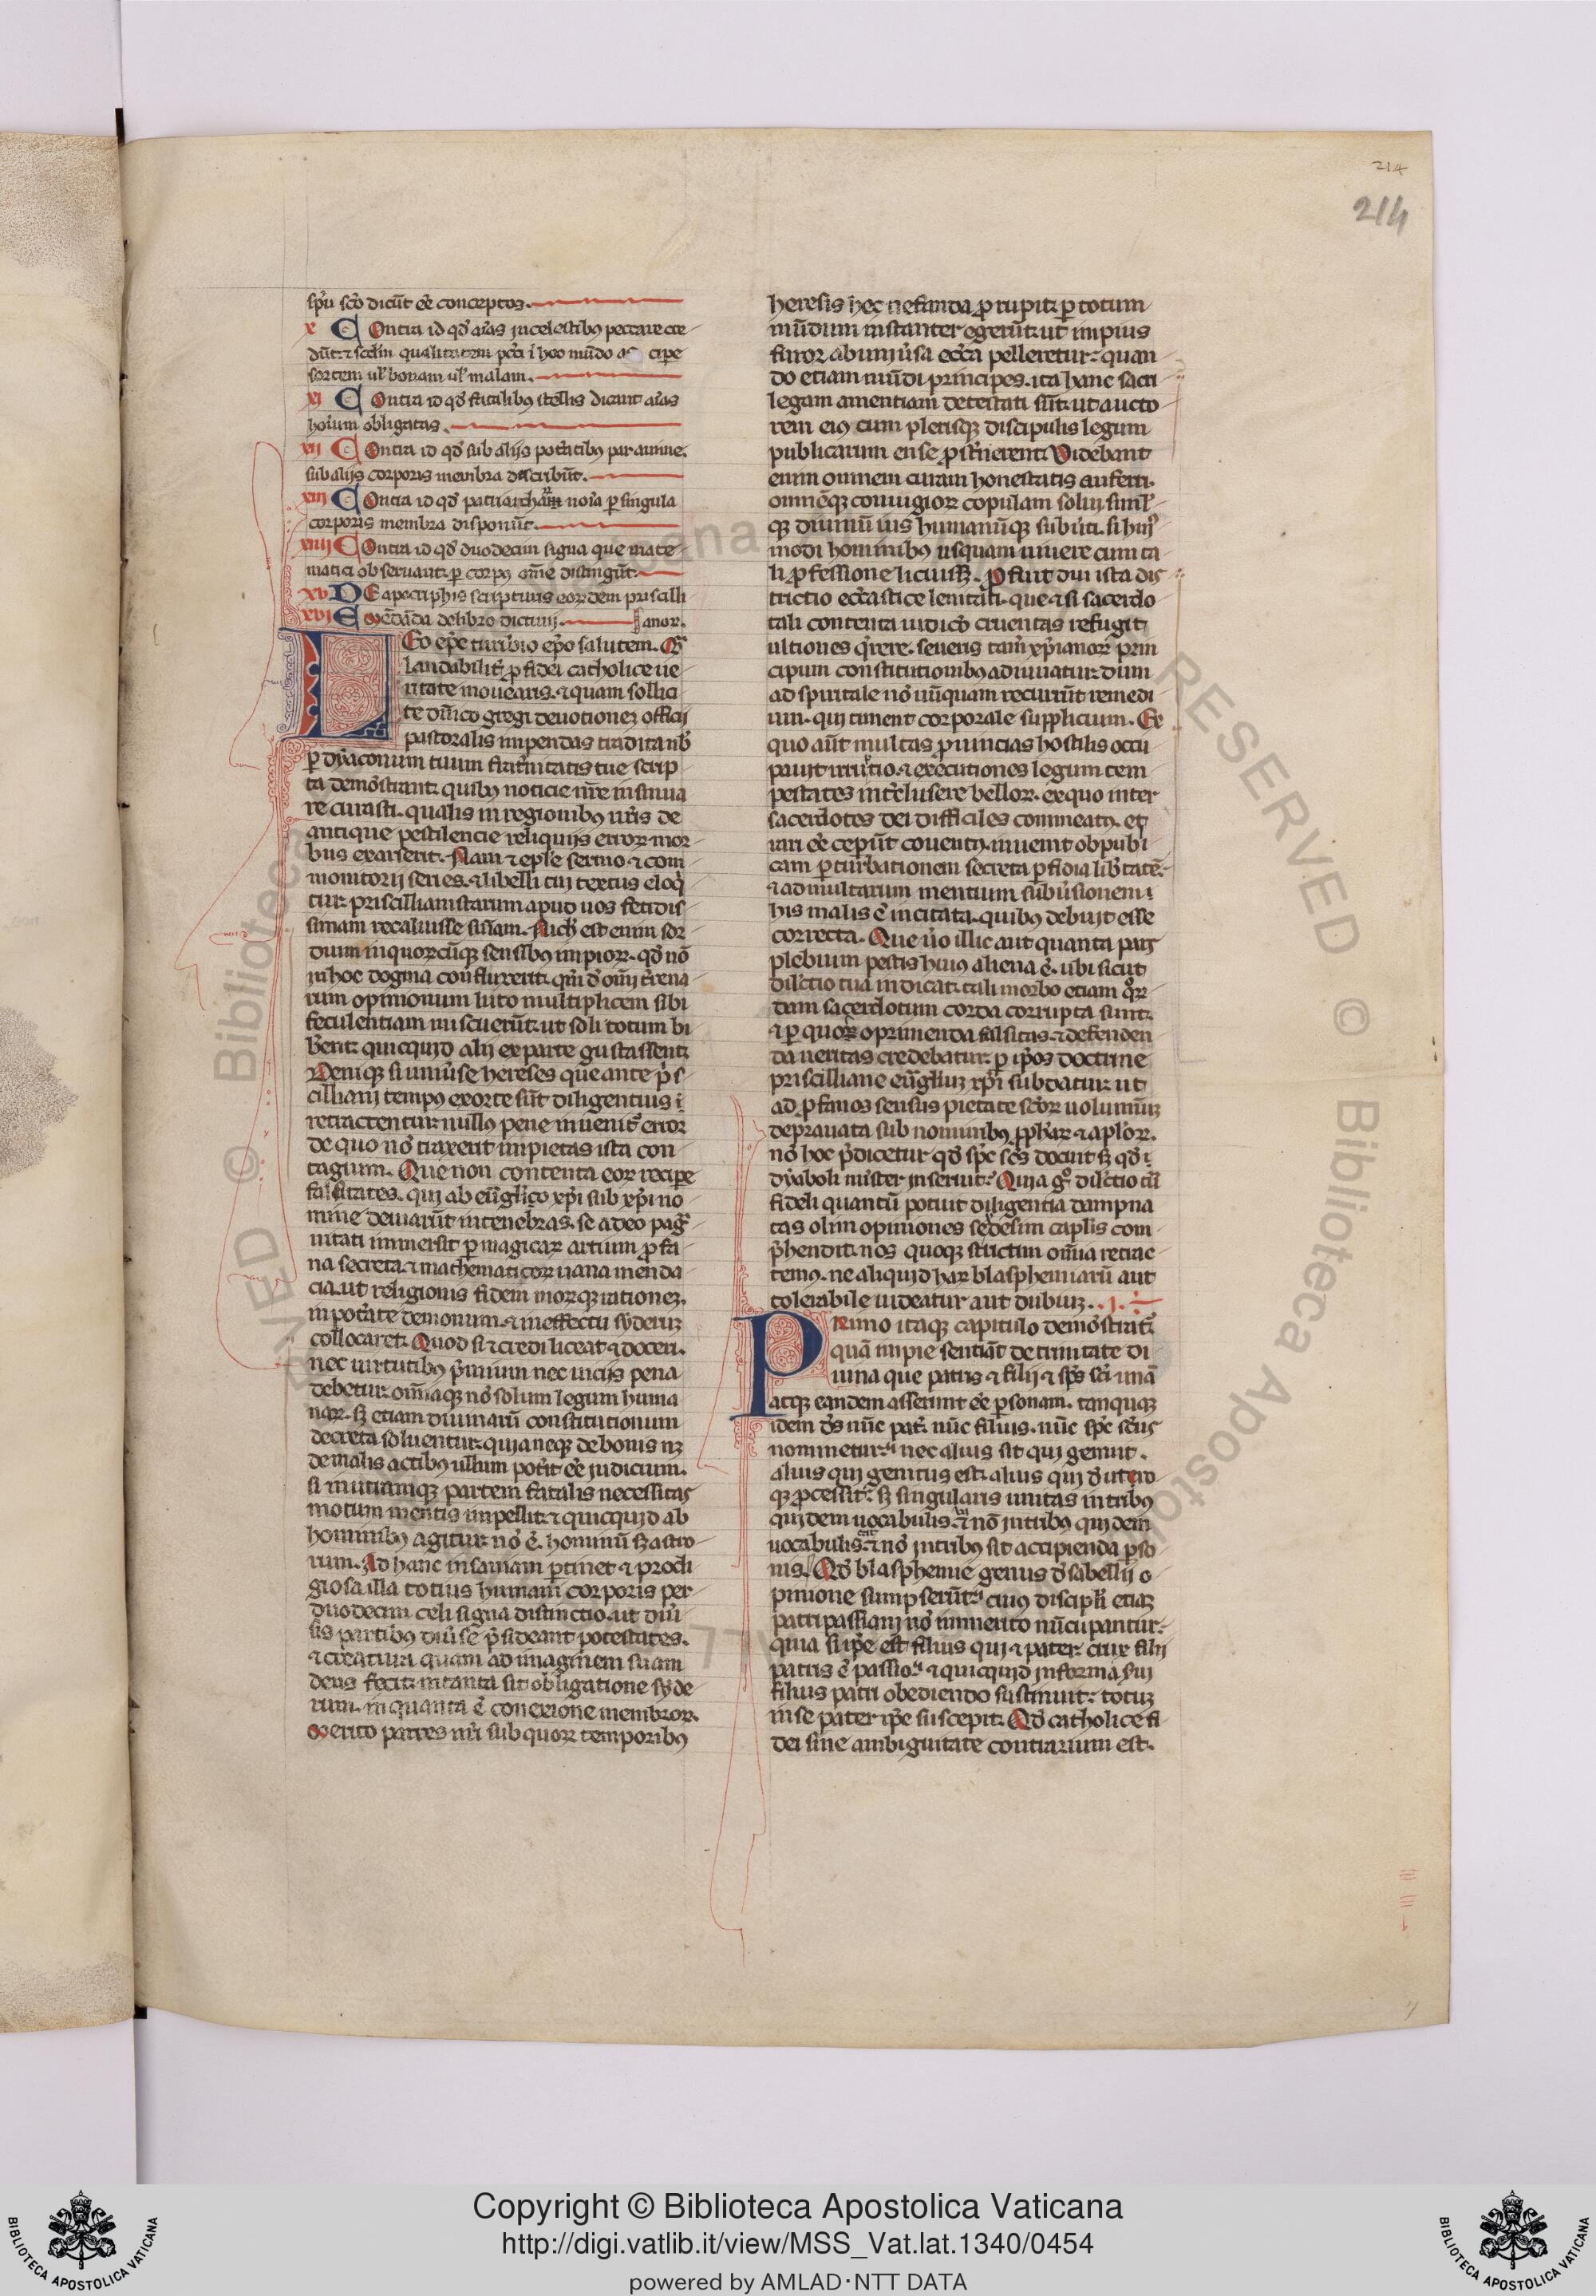 214
214
spũ scõ dicũt eẽ conceptos.
x COntra id qd̃ aĩas in celestibꝰ peccare cre
dũt ⁊ scdm̃ qualitatem pctĩ ĩ hoc mũdo ac cipe
sortem ul̃ bonam ul̃ malam.
xi COntra id qd̃ fatalibꝰ stellis dicant aĩas
hoĩum obligatas.
xii COntra id qd̃ sub alijs potãtibꝰ partes anime.
sub alijs corporis membra describũt.
xiii COntra id qd̃ patriarcharꝝ noĩa ꝑ singula
corporis membra disponũt.
xiiii COntra id qd̃ duodecim signa que mate
matici obseruant ꝑ corpꝰ om̃e distingũt.
xv DE apocriphis scripturis eorꝺem priscilli
xvi Emẽdãda de libro dictinij. anoꝝ.
LEo epc̃ turibio epõ salutem. Qã
laudabilit̃ ꝓ fidei catholice ue
ritate mouearis. ⁊ quam sollici
te dñico gregi deuotionez officij
pastoralis impendas tradita nb̃
ꝑ dyaconum tuum frat̃nitatis tue scrip
ta demõstrant. quibꝰ noticie nr̃e insinua
re curasti. qualis in regionibꝰ ur̃is de
antique pestilencie reliquijs erroꝝ mor
bus exarserit. Nam ⁊ eplẽ sermo ⁊ com
monitorij series. ⁊ libelli tui textus eloq̃
tur priscillianistarum apud uos fetidis
simam recaluisse sniãm. Nich̃ est enim sor
dium in quorũcũqꝫ sensibꝰ impioꝝ. qd̃ nõ
in hoc dogma confluxerit. qm̃ d̃ omĩ t̃rena
rum opinionum luto multiplicem sibi
feculentiam miscuerũt. ut soli totum bi
berẽt. quicquid alij ex parte gustassent.
Deniqꝫ si uniũse hereses que ante p̃s
cilliani tempꝰ exorte sũt diligentius ĩ
retractentur. nullꝰ pene inuenit̃ error
de quo nõ traxerit impietas ista con
tagium. Que non contenta eoꝝ recipe
falsitates. qui ab euãglico xp̃i sub xp̃i no
mine deuiarũt. in tenebras. se adeo pagã
nitati immersit. ꝑ magicaꝝ artium ꝓfa
na secreta. ⁊ mathematicoꝝ uana menda
cia. ut religionis fidem moꝝqꝫ rationez.
in potãte demonum. ⁊ in effectu sydeꝝ
collocaret. Quod si ⁊ credi liceat ⁊ doceri.
nec uirtutibꝰ p̃mium nec uicijs pena
debetur. om̃iaqꝫ nõ solum legum huma
naꝝ. sꝫ etiam diuinarũ constitutionum
decreta soluentur. quia neqꝫ de bonis nꝫ
de malis actibꝰ ullum potĩt eẽ iudicium.
si in utramqꝫ partem fatalis necessitas
motum mentis impellit. ⁊ quicquid ab
hominibꝰ agitur. nõ ẽ. hominũ sꝫ astro
rum. Ad hanc insaniam ꝑtinet ⁊ prodi
giosa illa totius humani corporis per
duodecim celi signa distinctio. ut diũ
sis partibꝰ diũse p̃sideant potestates.
⁊ creatura quam ad imaginem suam
deus fecit. in tanta sit obligatione syde
rum. in quanta ẽ conexione membroꝝ.
Merito patres nr̃i sub quoꝝ temporibꝰ
heresis hec nefanda ꝓrupit. ꝑ totum
mũdum instanter egerũt. ut impius
furor ab uniũsa ecc̃a pelleretur. quan
do etiam mũdi principes. ita hanc sacri
legam amentiam detestati sũt. ut aucto
rem eiꝰ cum plerisqꝫ discipulis legum
publicarum ense ꝓstern̄erent. Uidebant
enim omnem curam honestatis auferri.
omnẽqꝫ coniugioꝝ copulam solui. simĩl
qꝫ diuinũ ius humanũqꝫ subũti. si huiꝰ
modi hominibꝰ usquam uiuere cum ta
li ꝓfessione licuissꝫ. Profuit diu ista dis
trictio ecc̃astice lenitati. que ⁊ si sacerdo
tali contenta iudicõ cruentas refugit
ultiones q̃rere. seueris tam̃ xp̃ianoꝝ prin
cipum constitutionibꝰ adiuuatur. dum
ad spũitale nõ nũquam recurrũt remedi
um. qui timent corporale supplicium. Ex
quo aũt multas ꝓuincias hostilis occu
pauit irruptio. ⁊ executiones legum tem
pestates int̃clusere belloꝝ. ex quo inter
sacerdotes dei difficiles commeatꝰ. et
rari eẽ cepũt conuentꝰ. inuenit ob publi
cam ꝑturbationem secreta ꝑfidia lib̃tatẽ.
⁊ ad multarum mentium subũsionem.
his malis ẽ incitata. quibꝰ debuit esse
correcta. Que ũo illic aut quanta pars
plebium pestis huiꝰ aliena ẽ. ubi sicut
dil̃ctio tua indicat. tali morbo etiam q̃ꝝ
dam sacerdotum corda corrupta sunt.
⁊ ꝑ quoꝝ oprimenda falsitas. ⁊ defenden
da ueritas credebatur. ꝑ ip̃os doctrine
priscilliane euãgliuꝫ xp̃i subdatur. ut
ad ꝓfanos sensus pietate scõꝝ uoluminũ
deprauata sub nominibꝰ ꝓphãꝝ ⁊ aplõꝝ.
nõ hoc p̃dicetur qd̃ spc̃ scs̃ docuit sꝫ qd̃ ĩ
dyaboli mĩster inseruit. Quia gͦ dil̃ctio tua
fideli quantũ potuit diligentia dampna
tas olim opiniones sedecim caplis com
p̃hendit. nos quoqꝫ strictim om̃ia retrac
temꝰ. ne aliquid haꝝ blasphemiarũ aut
tolerabile uideatur aut dubiuꝫ. .j.
PRimo itaqꝫ capitulo demõstrat̃
quã impie sentiãt de trinitate di
uina que patris ⁊ filij ⁊ spc̃ scĩ unã
atqꝫ eandem asserunt eẽ ꝑsonam. tanquaꝫ
idem ds̃ nũc pat̃. nũc filius. nũc spc̃ scũs
nominetur. nec alius sit qui genuit.
alius qui genitus est. alius qui d̃ utro
qꝫ ꝓcessit. sꝫ singularis unitas in tribꝰ
quidem uocabulis. ⁊ nõ in tribꝰ quidem
uocabulis. ⁊ nõ in tribꝰ sit accipienda ꝑso
nis. Qd̃ blasphemie genus d̃ sabellij o
pinione sumpserũt. cuiꝰ discipli etiaꝫ
patripassiani nõ inmerito nũcupantur.
quia si ip̃e est filius qui ⁊ pater. crux filij
patris ẽ passio. ⁊ quicquid in forma sui
filius patri obediendo sustinuit. totuꝫ
in se pater ip̃e suscepit. Qd̃ catholice fi
dei sine ambiguitate contrarium est.
Copyright © Biblioteca Apostolica Vaticana
http://digi.vatlib.it/view/MSS_Vat.lat.1340/0454
powered by AMLAD·NTT DATA